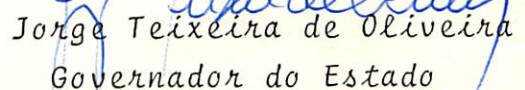 Jorge Teixeira de Oliveira
Governador do Estado